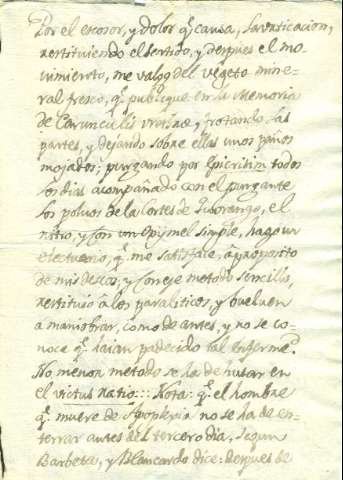 Por el escosor, y dolor q.e causa, la urticacion,
restituiendo el sentido, y despues el mo-
vimiento, me valgo del vegeto mine-
ral fresco, q.e publique en la Memoria
de Carunculis Uretræ, frotando las
partes, y dejando sobre ellas unos paños
mojados: purgando por Epicrisim todos
los dias acompañado con el purgante
los polvos de la Cortes de el
nitro, y con un Oxymel simple, hago un
electuario, q.e me satisface, â proposito
de mis deseos, y con este metodo sencillo,
restituio â los paraliticos, y buelven
a maniobrar, como de antes, y no se co-
noce q.e haian padecido tal enferme.d
No menor metodo se ha de husar en
el victus ratio::: Nota: q.e el hombre
q.e muere de Apoplexia no se ha de en-
terrar antes del tercero dia, segun
Barbeta, y Blancardo dice: despues de